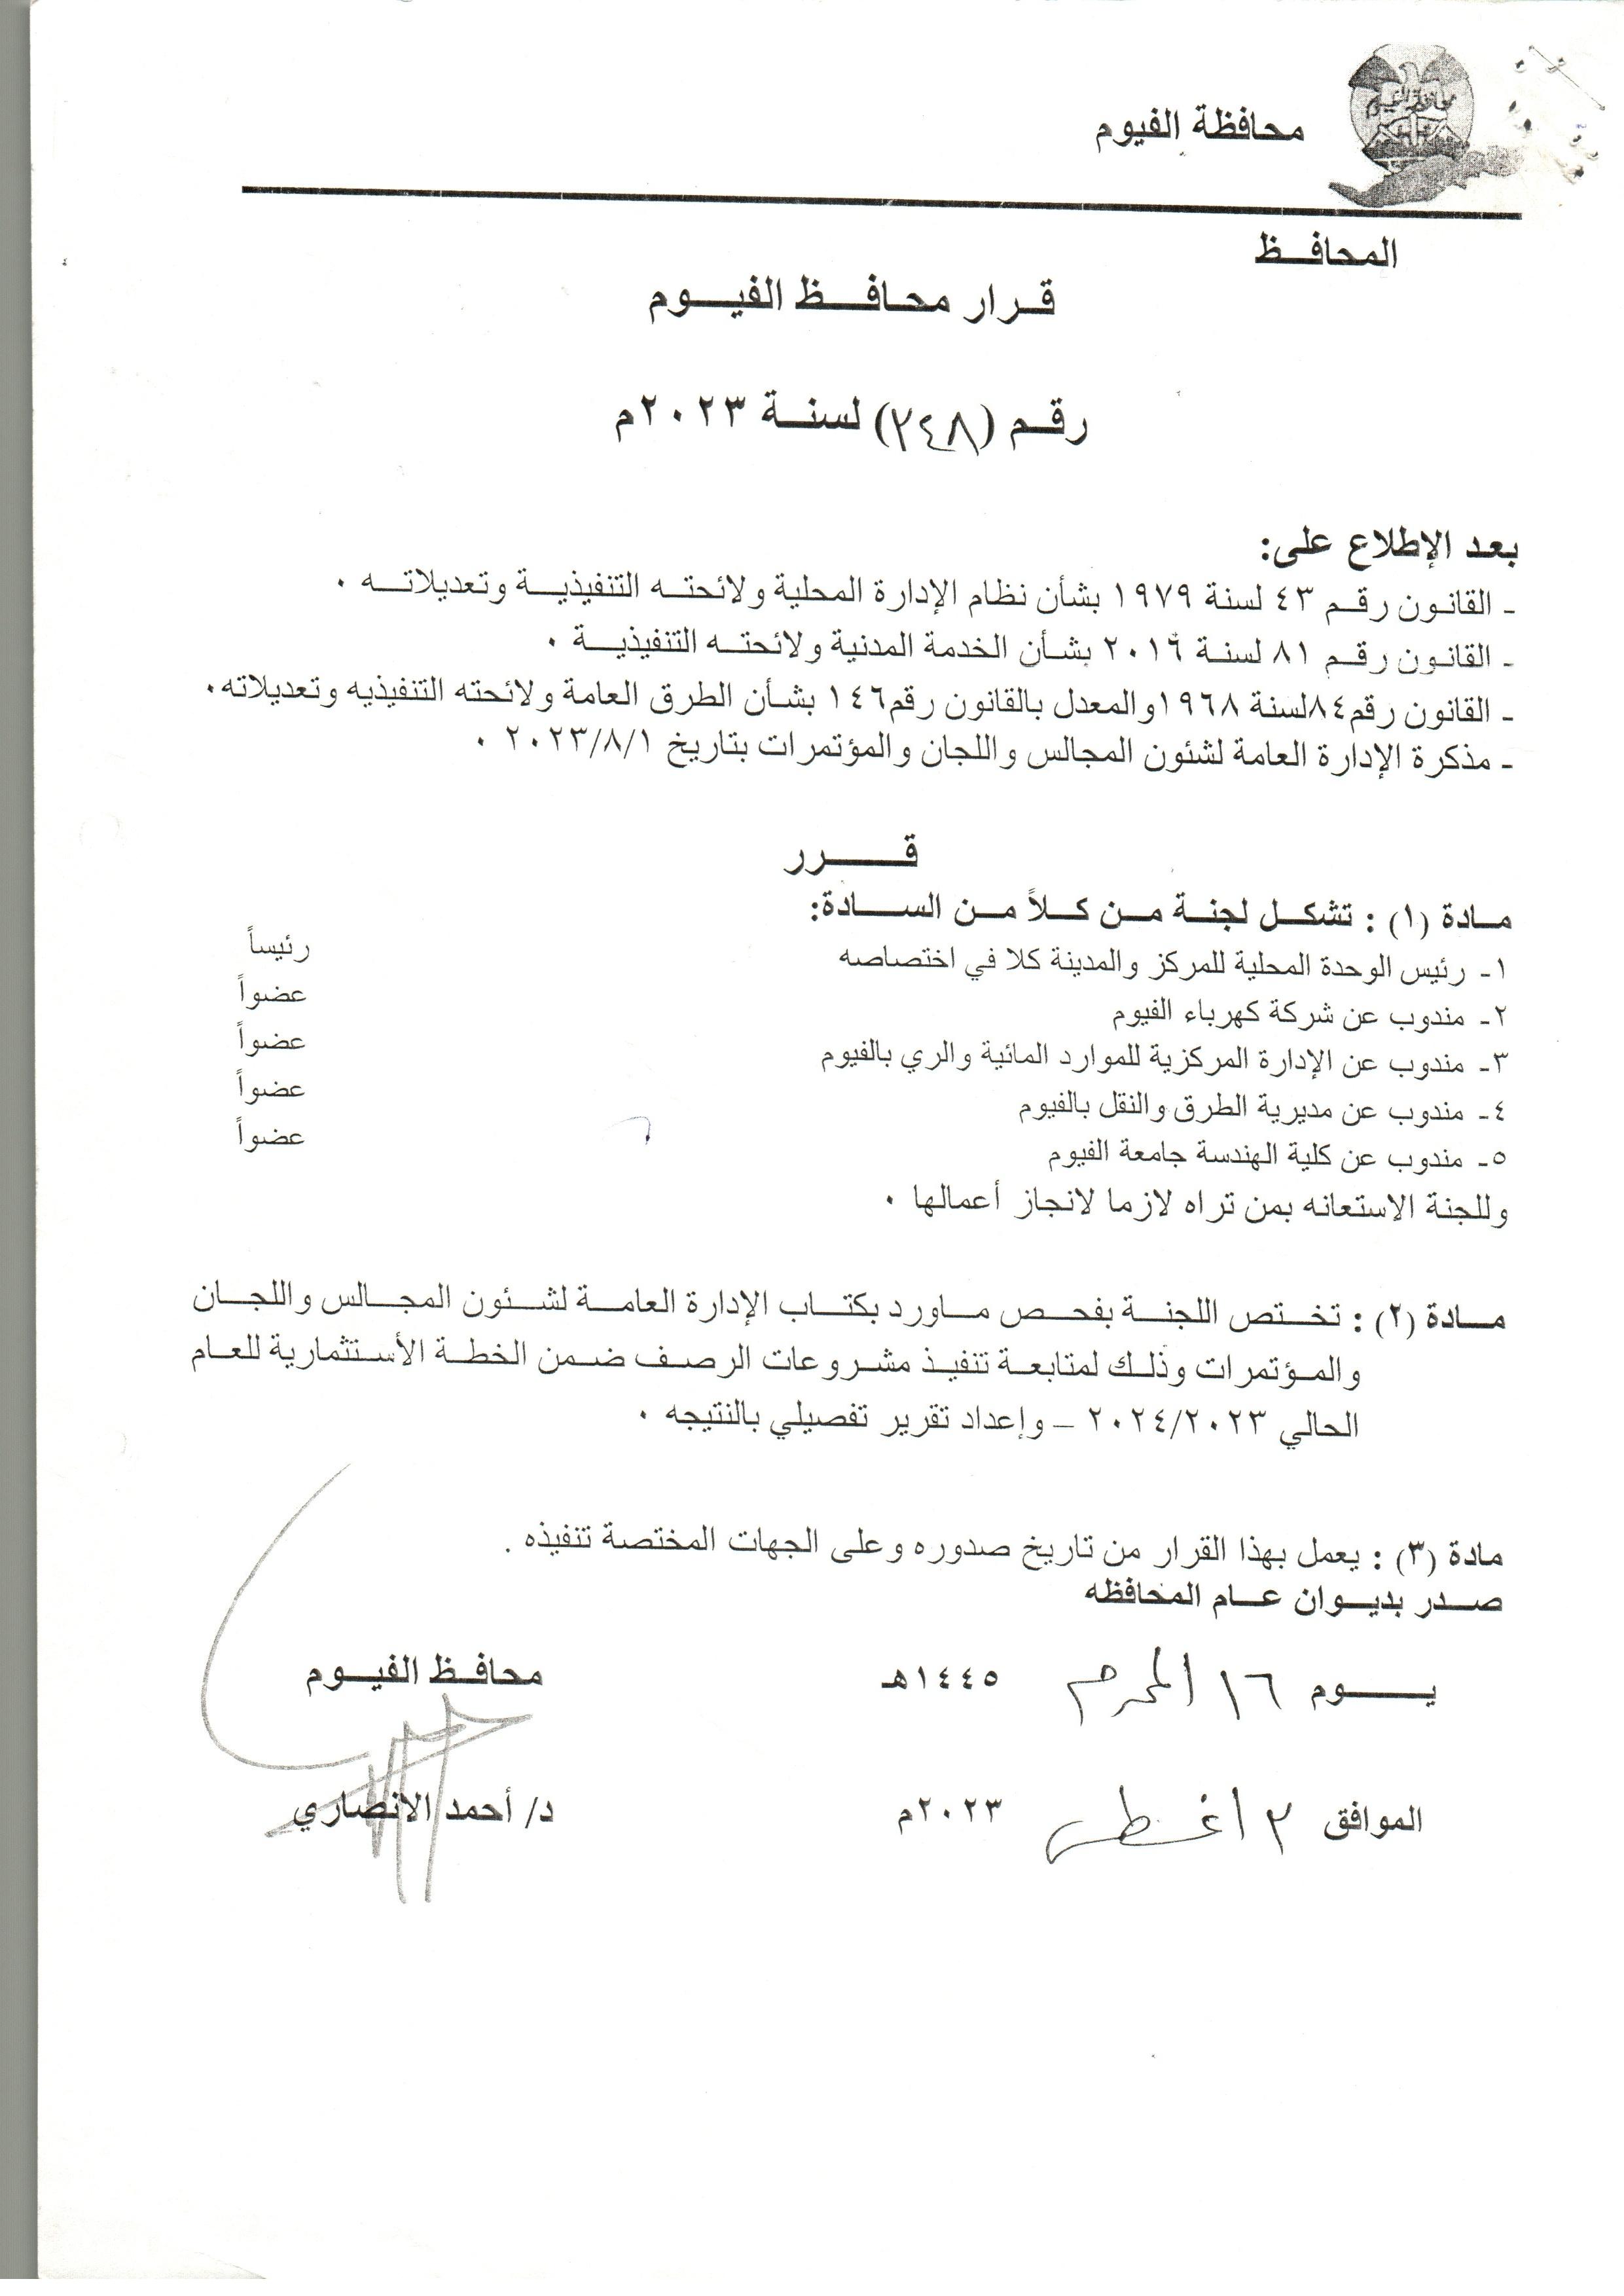 محافظة الفيوم
محافظة الفيوم
المحافظ
قرار محافظ الفيوم
رقم (٢٤٨) لسنة ٢٠٢٣م
بعد الإطلاع على:
- القانون رقم ٤٣ لسنة ١٩٧٩ بشأن نظام الإدارة المحلية ولائحته التنفيذية وتعديلاته ٠
- القانون رقم ٨١ لسنة ٢٠١٦ بشأن الخدمة المدنية ولائحته التنفيذية ٠
- القانون رقم٨٤لسنة ١٩٦٨والمعدل بالقانون رقم١٤٦ بشأن الطرق العامة ولائحته التنفيذيه وتعديلاته٠
- مذكرة الإدارة العامة لشئون المجالس واللجان والمؤتمرات بتاريخ ٢٠٢٣/٨/١ ٠
قرر
مادة (١) : تشكل لجنة من كلاً من السادة:
١- رئيس الوحدة المحلية للمركز والمدينة كلا في اختصاصه رئيساً
٢- مندوب عن شركة كهرباء الفيوم عضواً
٣- مندوب عن الإدارة المركزية للموارد المائية والري بالفيوم عضواً
٤- مندوب عن مديرية الطرق والنقل بالفيوم عضواً
٥- مندوب عن كلية الهندسة جامعة الفيوم عضواً
وللجنة الاستعانه بمن تراه لازما لانجاز أعمالها ٠
مادة (٢) : تختص اللجنة بفحص ماورد بكتاب الإدارة العامة لشئون المجالس واللجان
والمؤتمرات وذلك لمتابعة تنفيذ مشروعات الرصف ضمن الخطة الأستثمارية للعام
الحالي ٢٠٢٤/٢٠٢٣ – وإعداد تقرير تفصيلي بالنتيجه ٠
مادة (٣) : يعمل بهذا القرار من تاريخ صدوره وعلى الجهات المختصة تنفيذه .
صدر بديوان عام المحافظه
يوم ١٦ المحرم ١٤٤٥هـ محافظ الفيوم
الموافق ٣ اغسطس ٢٠٢٣م د/ أحمد الانصاري